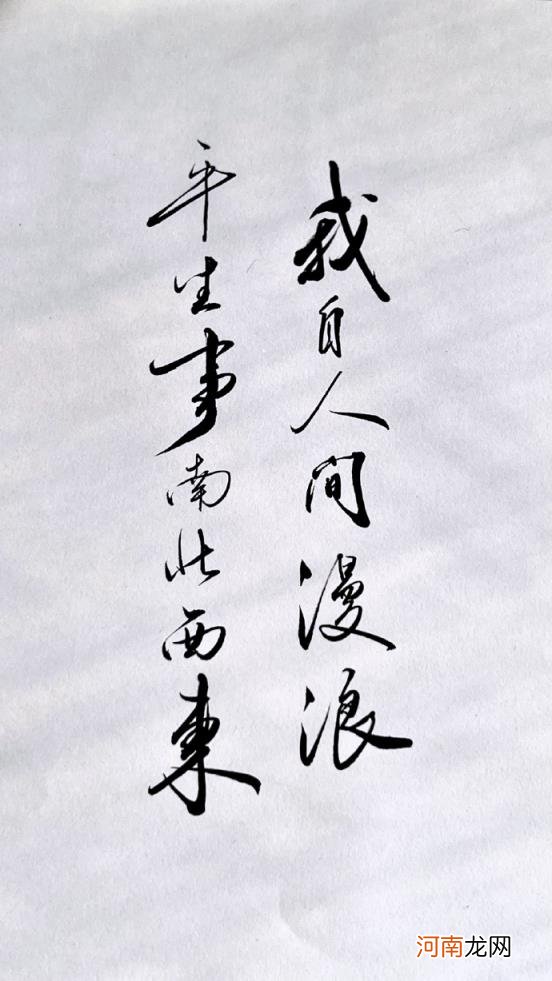 我自人间漫浪
平生事南北西東
河南龙网